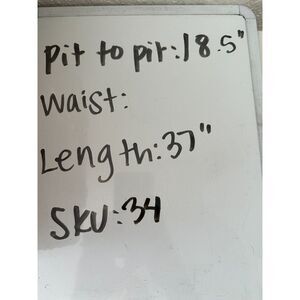 pit to pit: 18.5"
Waist:
Length: 37"
SKU: 34